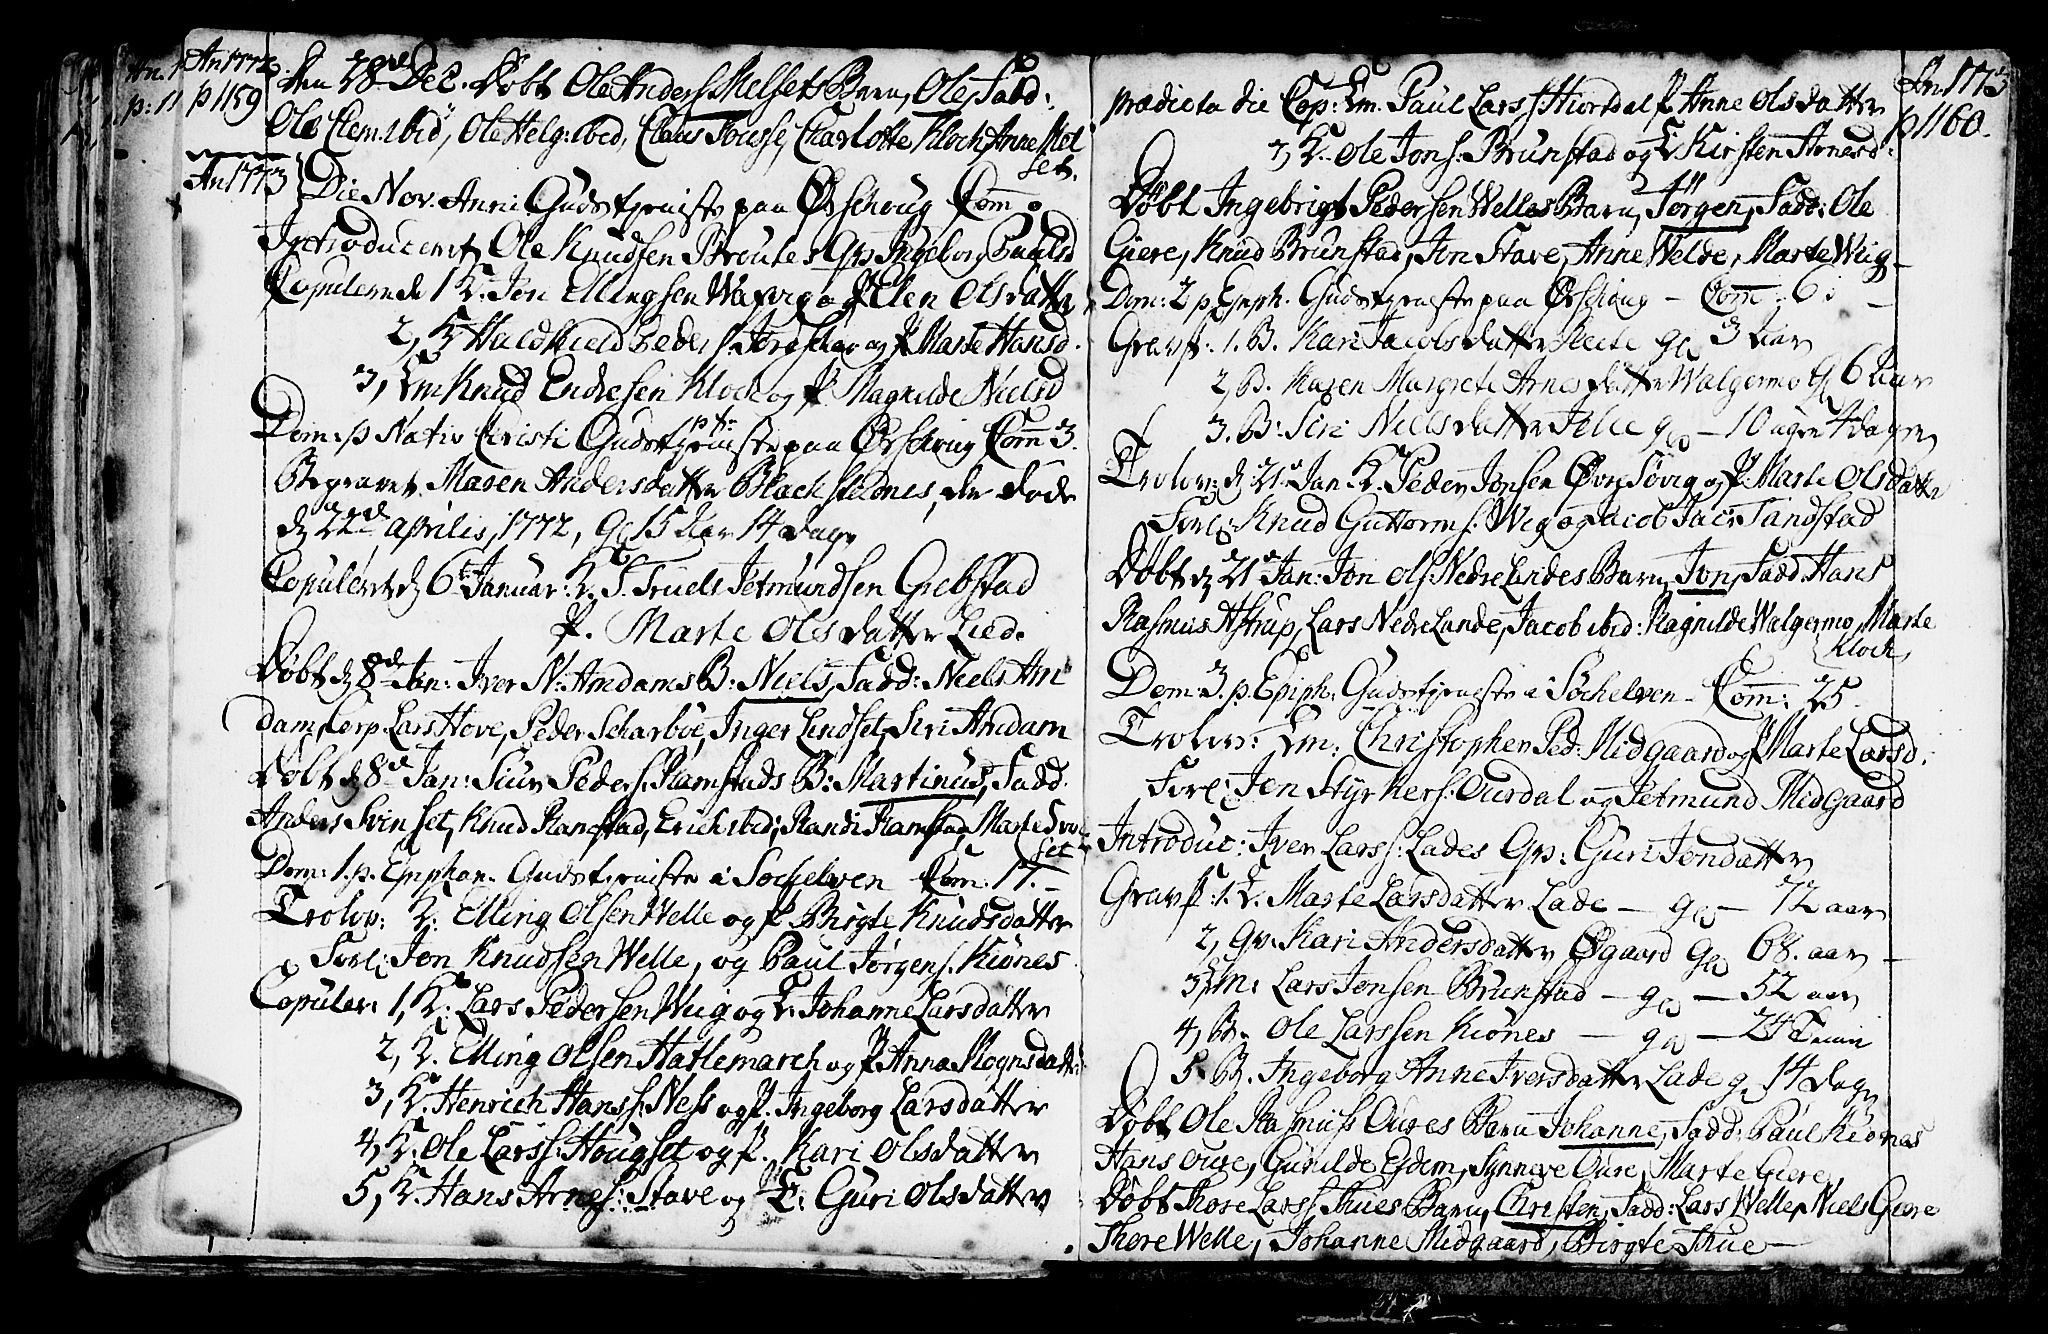 An 1772
p 1159
den 28de Dec. Døbt Ole Anders: Melsets Barn, Ole, Fadd:
Ole Clem: ibid, Ole Helg: ibid, Claus Jousse, Charlotte Kloch, Anne Mel
set.
An 1773
Die Nov. Anni Gudstjeniste paa Ørschoug Com o
Introduceret Ole Knudsen Brautes Qv: Ingeborg Paulsd
Copulerede 1 K. Jon Ellingsen Watvig og P. Elen Olsdatter
2, K Haldkield Peders: Jordschar og P Marte Hansd.
3, Em Knud Endresen Kloch og P. Magnilde Nielsd
Dom: p Nativ Christi Gudstjeniste paa Ørschoug Com 3.
Begravet Maren Andersdatter Blachstednes, der døde
d 22de aprilis, 1772, gl 15 Aar 14 dage
Copuleret d 6te Januar: K. S. Truels Jetmundsen Giebstad
P. Marte Olsdatter Lied.
Døbt d 8de Jan: Iver N: Amdams B: Niels, Fadd: Niels Am
dam, Corp. Lars Hove, Peder Scharbøe, Inger Lindset, Siri Amdam
Døbt d 8de Jan: Siur Peders: Ramstads B: Martinus, Fadd.
Anders Svinset, Knud Ramstad, Erich ibid; Randi Ramstad, Marte
set
Dom: 1. p. Epiphan. Gudstjeniste i Søchelven Com: 17.
Trolov: K. Elling Olsen Welle og P. Birgte Knudsdatter
Forl: Jon Knudsen Welle, og Paul Jørgens: Kiønes
Copuler: 1, K. Lars Pedersen Wiig og E. Johanne Larsdatter
2, K. Elling Olsen Hatlemarch og P. Anna Mognsdatt:
3, K. Henrich Hanss: Ness og P. Ingeborg Larsdatter
4, K: Ole Larss: Hougset og P. Kari Olsdatter
5, K. Hans Arnes: Stave og E: Guri Olsdatter
An: 1773
p 1160.
prædicta die Cop: Em: Paul Lars: Hiortdal P Anne Olsdatter
7, K. Ole Jons: Brunstad og E Kirsten Arnesd:
Døbt Ingebrigt Pedersen Welles Barn, Jörgen, Fadd: Ole
Giere, Knud Brunstad, Jon Stave, Anne Welde, Marte Wiig
Dom: 2 p. Epiph. Gudstjeniste paa Ørschoug - Com: 6
Gravf: 1. B. Kari Jacobsdatter gl 3 Aar
2, B. Karen Margrete Arnesdatter Walgermo gl 6 Aar
3. B: Siri Nielsdatter gl - 10 uger 4 dage
Trolov: d 21de Jan. K. Peder Jonsen Øvre Søvig og P. Marte Olsdatter
Forl: Knud Guttorms: Wiig og Jacob Jac: Tandstad
Døbt d 21de Jan: Jon Ols: Nedre Landes Barn, Jon, Fadd. Hans
Rasmus Astrup, Lars Nedre Lande, Jacob ibid: Ragnilde Walgermo, Marte
Kloch
Dom: 3. p. Epiph: Gudstjeniste i Søchelven - Com: 25
Trolov: Em: Christopher Ped: Midgaard og P Marte Larsd.
Forl: Jon Styrkers: Ourdal og Jetmund Midgaard
Introduc: Iver Larss: Lades Qv: Guri Jondatter
Gravf: 1. E. Marte Larsdatter Lade - gl - 72 aar
2, Qv: Kari Andersdatter Øgaard gl 68. aar
3, Em: Lars Jonsen Brunstad - gl - 52 aar
4, B. Ole Larssen Kiønes - gl - 24 Timer
5. B. Ingeborg Anne Iversdatter Lade gl 14 dage
Døbt Ole Rasmuss Oures Barn Johanne, Fadd: Paul Kiønes
Hans Oure, Gunilde Eidem, Synneve Oure, Marte Giere
Døbt Thore Larss: Thues Barn, Christen, Fadd: Lars Welle, Niels Giere
Thore Welle, Johanne Midgaard, Birgte Thue